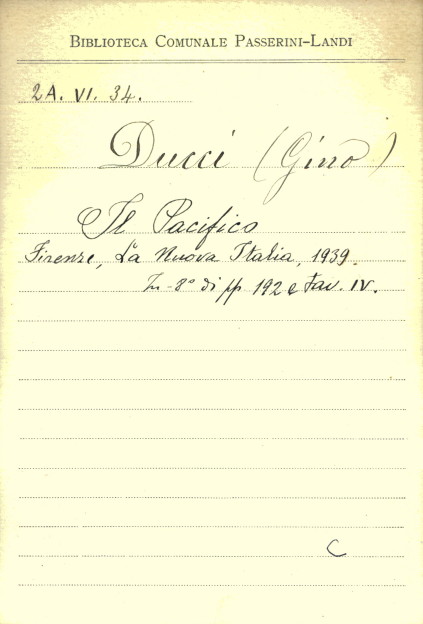 BIBLIOTECA COMUNALE PASSERINI-LANDI
2A. VI. 34.
Ducci (Gino)
Il Pacifico
Firenze, La Nuova Italia, 1939.
In-8° di pp 192 e tav. IV.
C